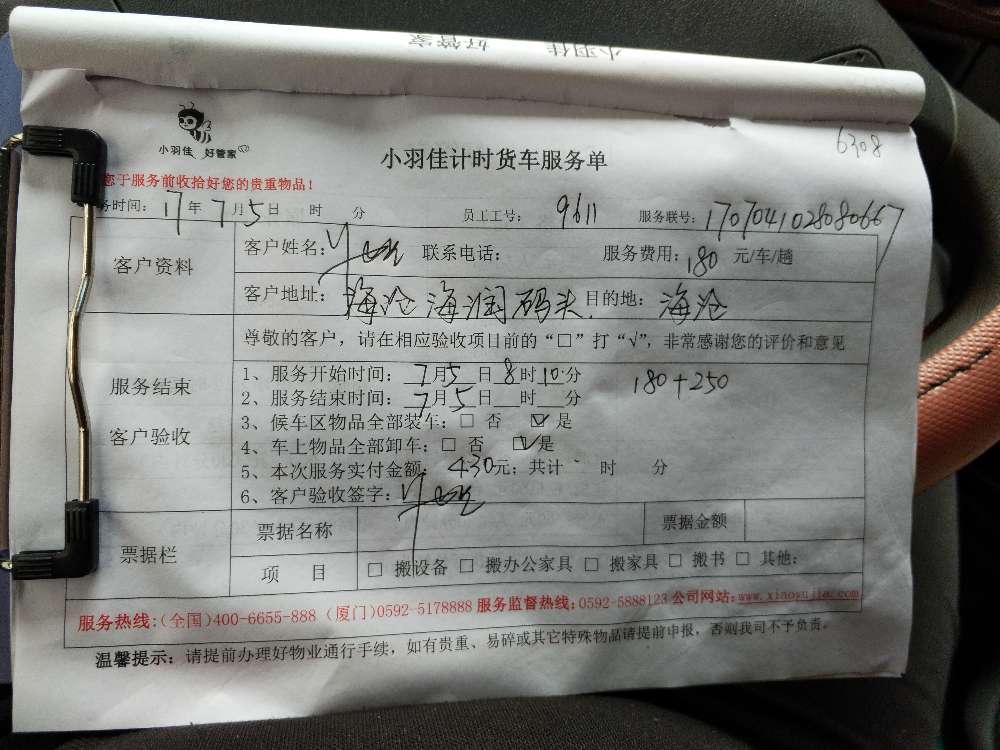 小羽佳 好管家
6308
小羽佳 好管家
小羽佳计时货车服务单
您于服务前收拾好您的贵重物品！
务时间：17年7月5日 时 分 员工工号：9611 服务联号：1707041028080667
客户资料 客户姓名： 联系电话： 服务费用：180元/车/趟
客户地址：海沧海润码头. 目的地：海沧
尊敬的客户，请在相应验收项目前的“□”打“√”，非常感谢您的评价和意见
服务结束
客户验收
1、服务开始时间：7月5日8时10分 180+250
2、服务结束时间：7月5日 时 分
3、候车区物品全部装车：□ 否 ☑ 是
4、车上物品全部卸车：□ 否 ☑ 是
5、本次服务实付金额：430元；共计 时 分
6、客户验收签字：
票据栏 票据名称 票据金额
项 目 □ 搬设备 □ 搬办公家具 □ 搬家具 □ 搬书 □ 其他：
服务热线：(全国)400-6655-888 (厦门)0592-5178888 服务监督热线：0592-5888123 公司网站：www.xiaoyujia.com
温馨提示：请提前办理好物业通行手续，如有贵重、易碎或其它特殊物品请提前申报，否则我司不予负责。